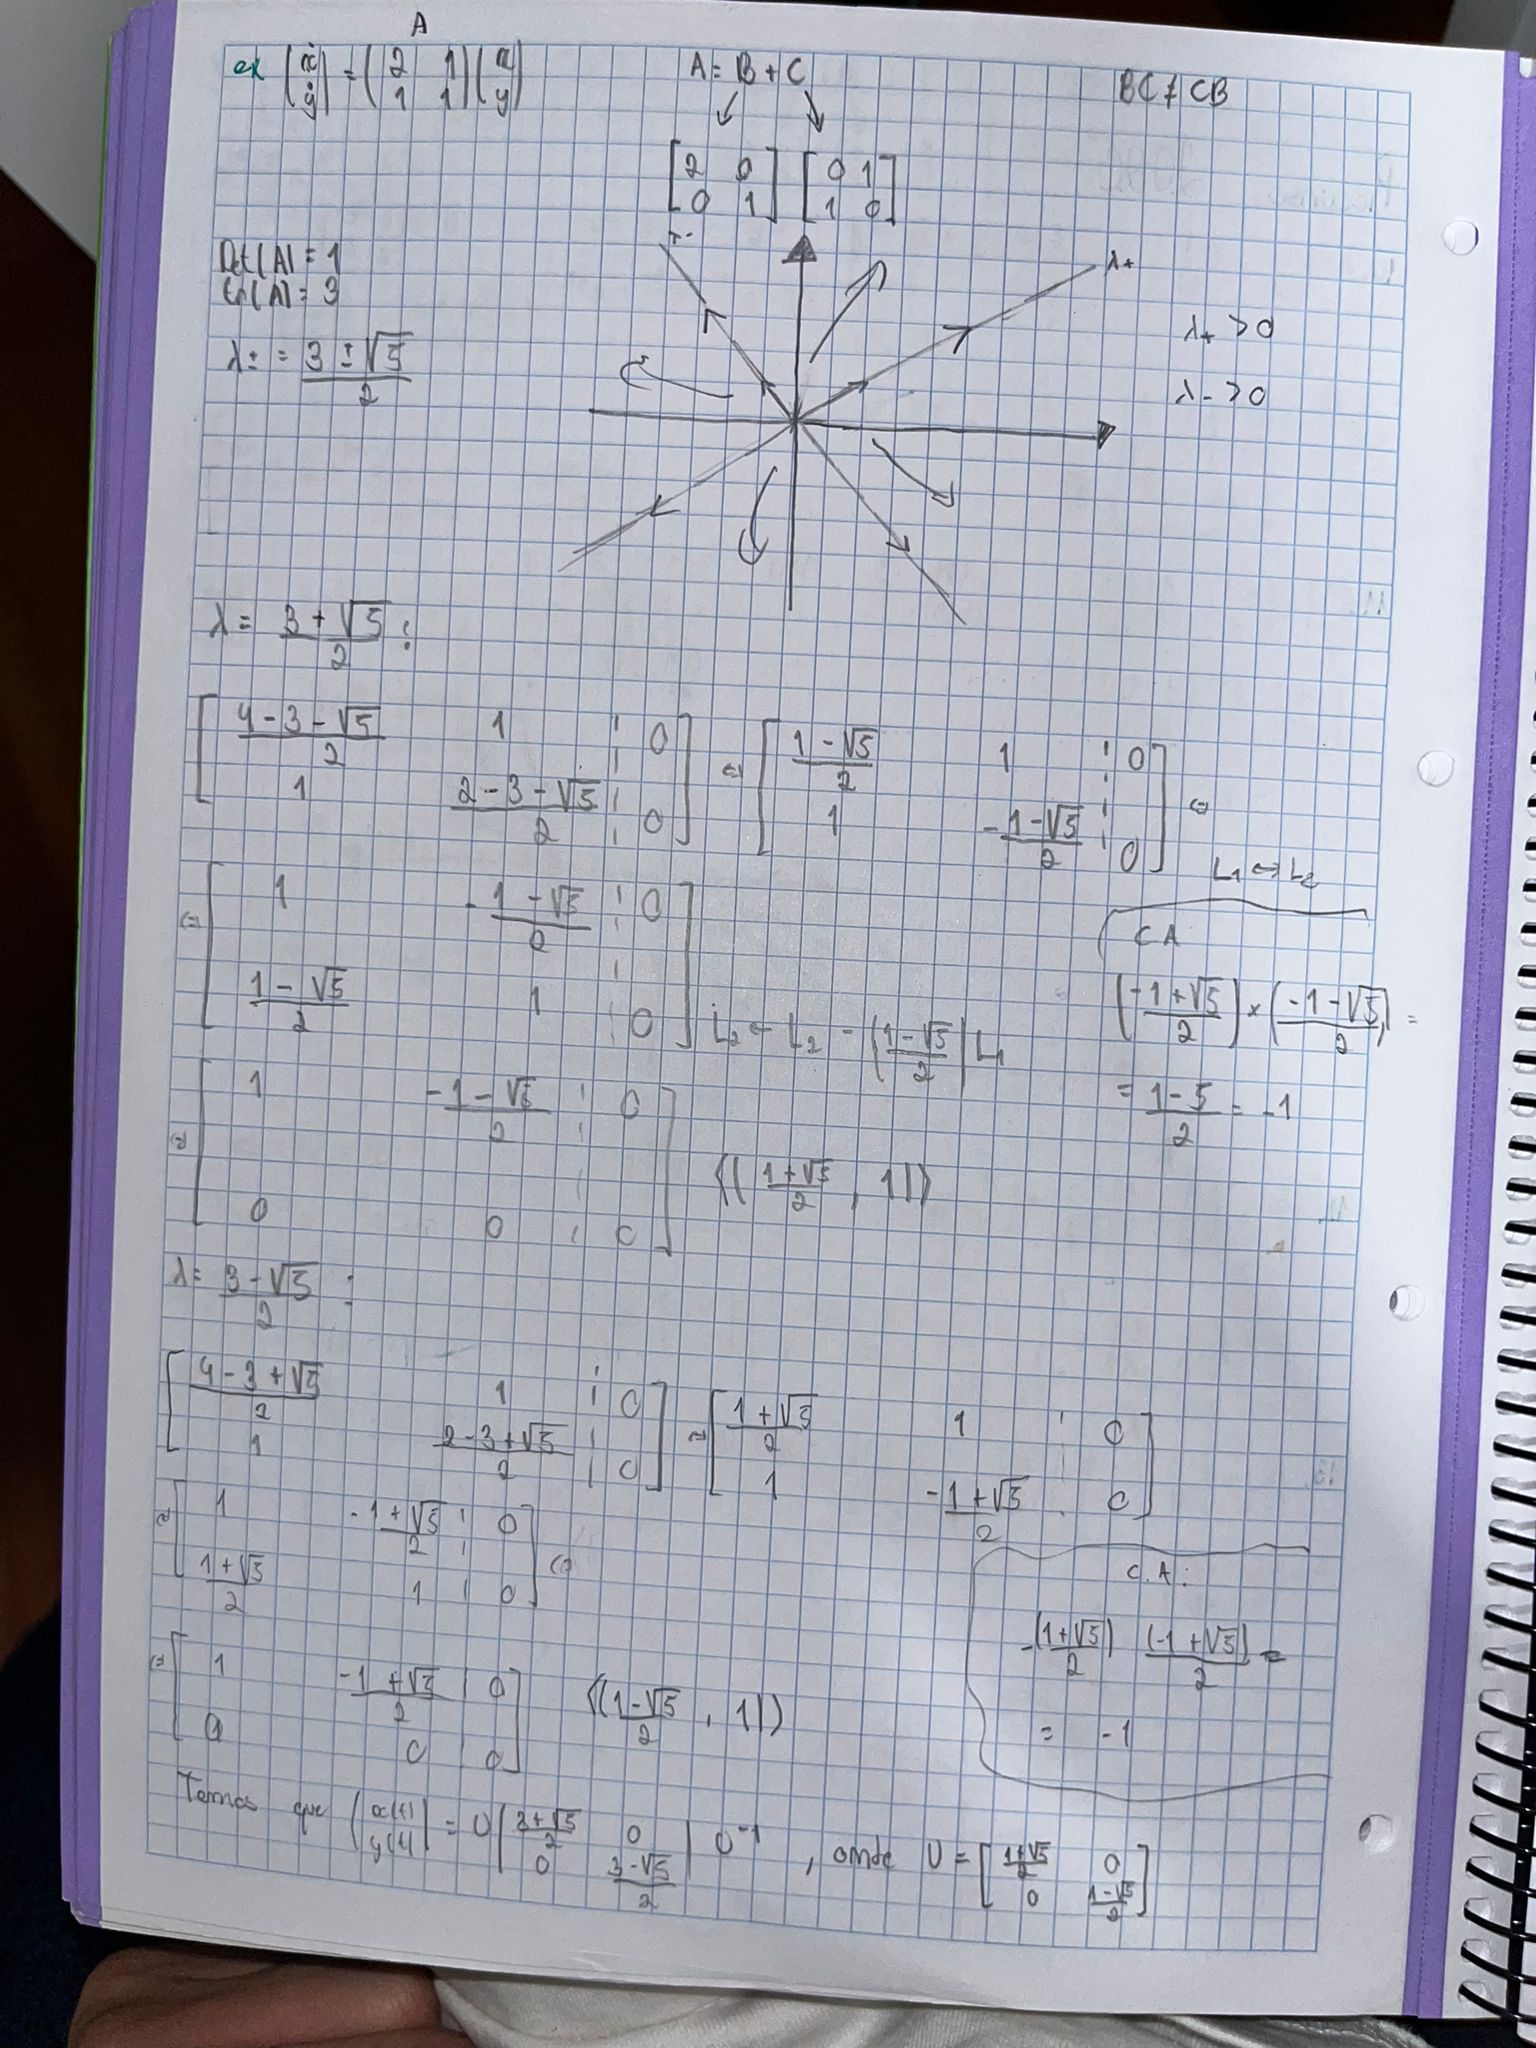 ex (ẋ ẏ) = (2 1; 1 1)(x y)
A
A = B + C
BC ≠ CB
[2 0; 0 1] [0 1; 1 0]
Det(A) = 1
tr(A) = 3
λ± = (3 ± √5)/2
λ-
λ+
λ+ > 0
λ- > 0
λ = (3 + √5)/2 :
[(4-3-√5)/2 1 | 0; 1 (2-3-√5)/2 | 0] ⇔ [(1-√5)/2 1 | 0; 1 (-1-√5)/2 | 0] ⇔
L1 ↔ L2
⇔ [1 (-1-√5)/2 | 0; (1-√5)/2 1 | 0] L2 ← L2 - ((1-√5)/2) L1
C.A
((-1+√5)/2) × ((-1-√5)/2) =
= (1-5)/2 = -1
⇔ [1 (-1-√5)/2 | 0; 0 0 | 0] ⟨((1+√5)/2, 1)⟩
λ = (3-√5)/2 :
[(4-3+√5)/2 1 | 0; 1 (2-3+√5)/2 | 0] ⇔ [(1+√5)/2 1 | 0; 1 (-1+√5)/2 | 0]
⇔ [1 (-1+√5)/2 | 0; (1+√5)/2 1 | 0] ⇔
C.A:
-((1+√5)/2) ((-1+√5)/2) =
= -1
⇔ [1 (-1+√5)/2 | 0; 0 0 | 0] ⟨((1-√5)/2, 1)⟩
Temos que (x(t) y(t)) = U ((3+√5)/2 0; 0 (3-√5)/2) U⁻¹, onde U = [(1+√5)/2 0; 0 (1-√5)/2]